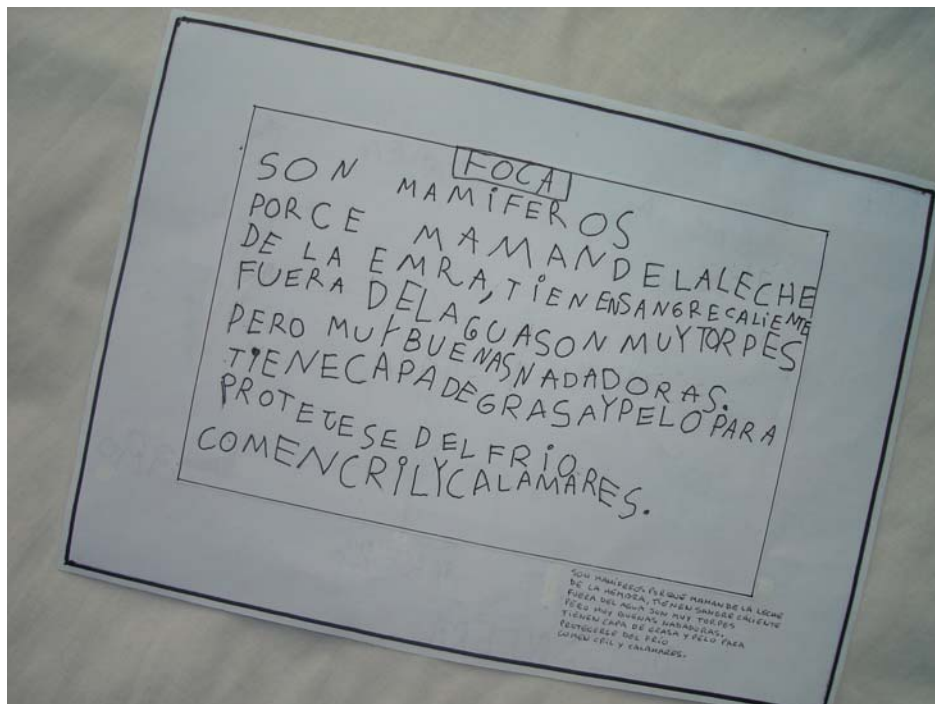 FOCA
SON MAMÍFEROS
PORCE MAMAN DE LA LECHE
DE LA EMRA, TIENEN SANGRE CALIENTE
FUERA DEL AGUA SON MUY TORPES
PERO MUY BUENAS NADADORAS.
TIENE CAPA DE GRASA Y PELO PARA
PROTEUESE DEL FRIO
COMEN CRIL Y CALAMARES.
SON MAMÍFEROS PORQUE MAMAN DE LA LECHE
DE LA HEMBRA, TIENEN SANGRE CALIENTE
FUERA DEL AGUA SON MUY TORPES
PERO MUY BUENAS NADADORAS.
TIENEN CAPA DE GRASA Y PELO PARA
PROTEGERLE DEL FRÍO
COMEN CRIL Y CALAMARES.